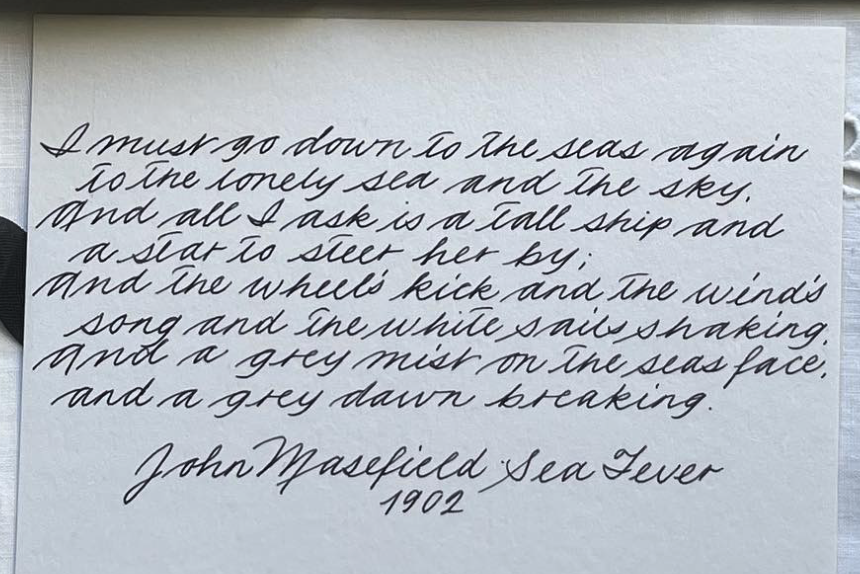 I must go down to the seas again
to the lonely sea and the sky.
And all I ask is a tall ship and
a star to steer her by;
And the wheel's kick and the wind's
song and the white sails shaking.
And a grey mist on the seas face,
and a grey dawn breaking.
John Masefield Sea Fever
1902